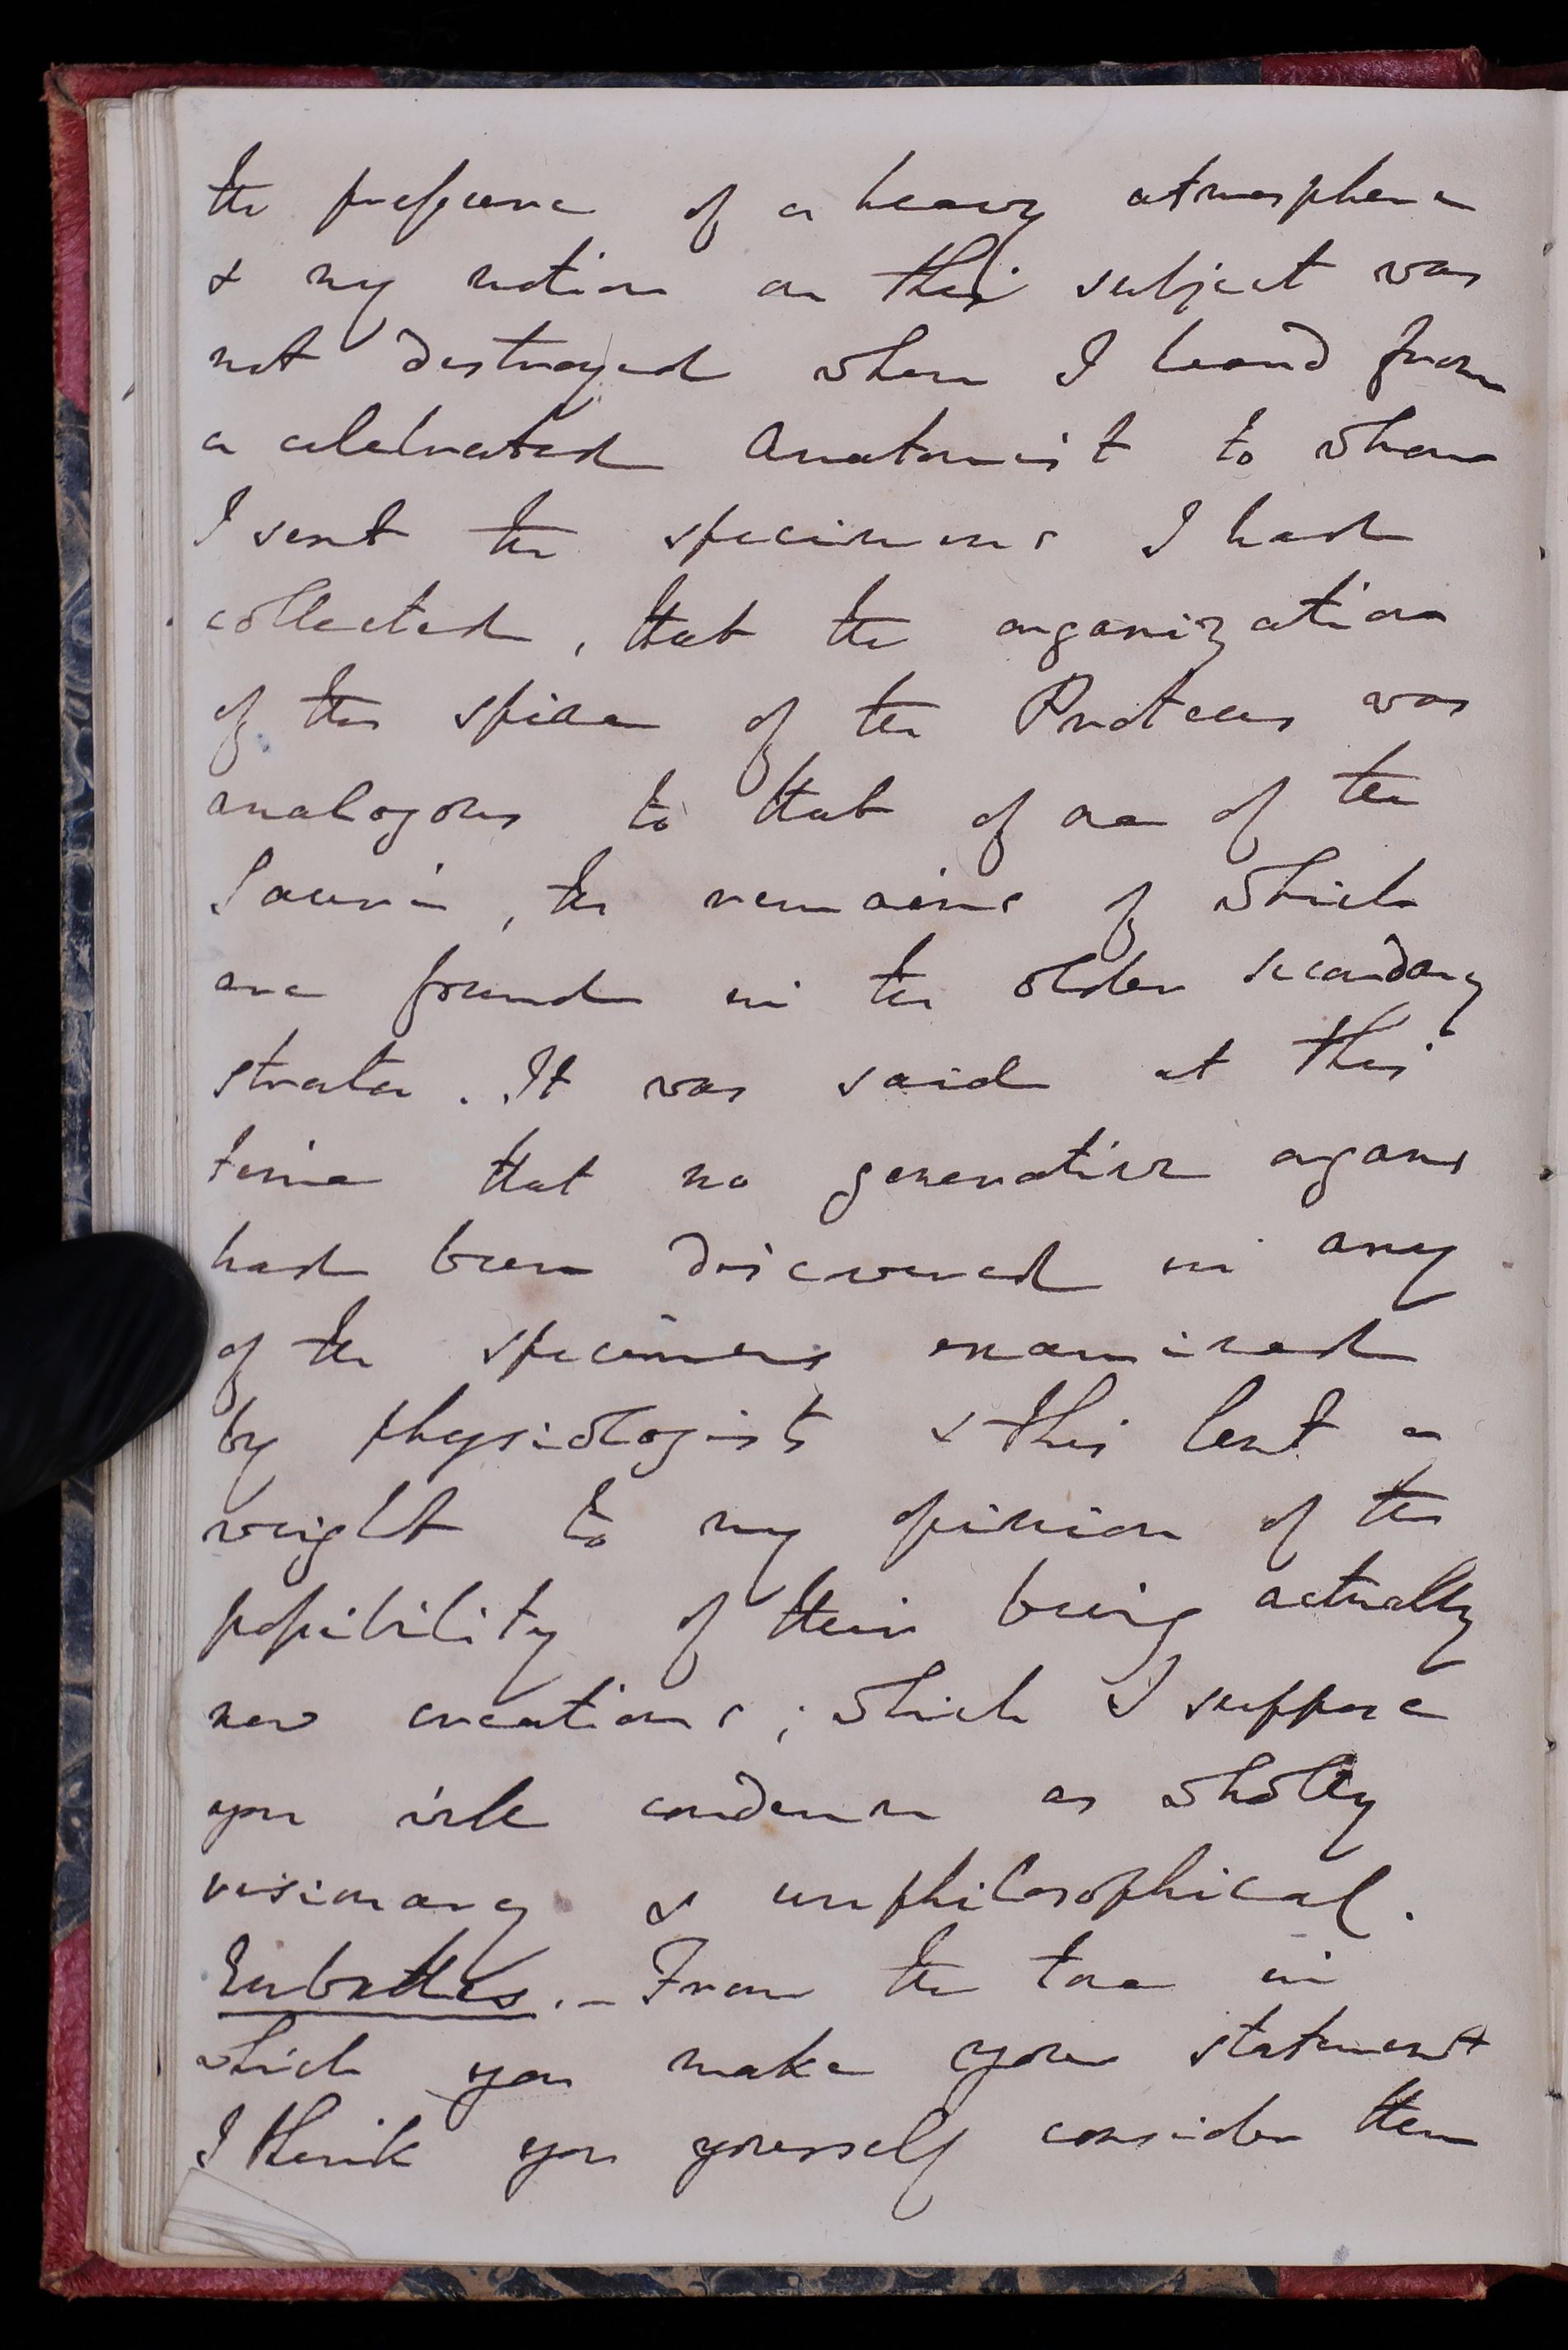 the pressure of a heavy atmosphere
& my notion on this subject was
not destroyed when I heard from
a celebrated Anatomist to whom
I sent the specimens I had
collected, that the organization
of the spine of the Proteus was
analogous to that of one of the
Sauri , the remains of which
are found in the older secondary
strata. It was said at this
time that no generative organs
had been discovered in any
of the specimens examined
by physiologists & this lent a
weight to my opinion of the
possibility of their being actually
new creations; which I suppose
you will condemn as wholly
visionary & unphilosophical.
Eubathes. – From the tone in
which you make your statement
I think you yourself consider them